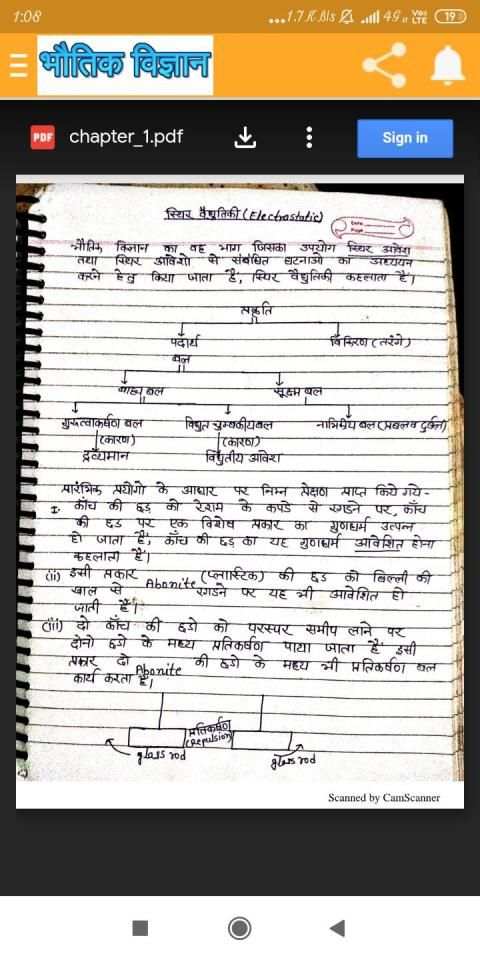 1:08
...1.7 K B/s 4G Vo LTE 19
भौतिक विज्ञान
PDF chapter_1.pdf Sign in
स्थिर वैद्युतिकी (Electrostatic)
भौतिक विज्ञान का वह भाग जिसका उपयोग स्थिर आवेश
तथा स्थिर आवेशो से संबंधित घटनाओ का अध्ययन
करने हेतु किया जाता है, स्थिर वैद्युतिकी कहलाता है।
प्रकृति
पदार्थ विकिरण (तरंगे)
बल
बाह्य बल सूक्ष्म बल
गुरुत्वाकर्षण बल विद्युत चुम्बकीय बल नाभिकीय बल (प्रबल व दुर्बल)
(कारण) (कारण)
द्रव्यमान विद्युतीय आवेश
प्रारंभिक प्रयोगो के आधार पर निम्न प्रेक्षण प्राप्त किये गये -
I. काँच की छड़ को रेशम के कपडे से रगडने पर, काँच
की छड पर एक विशेष प्रकार का गुणधर्म उत्पन्न
हो जाता है, काँच की छड़ का यह गुणधर्म आवेशित होना
कहलाता है।
(ii) इसी प्रकार Abonite (प्लास्टिक) की छड को बिल्ली की
खाल से रगडने पर यह भी आवेशित हो
जाती है।
(iii) दो काँच की छडो को परस्पर समीप लाने पर
दोनो छडो के मध्य प्रतिकर्षण पाया जाता है इसी
प्रकार दो Abonite की छडो के मध्य भी प्रतिकर्षण बल
कार्य करता है।
प्रतिकर्षण
(Repulsion)
glass rod glass rod
Scanned by CamScanner